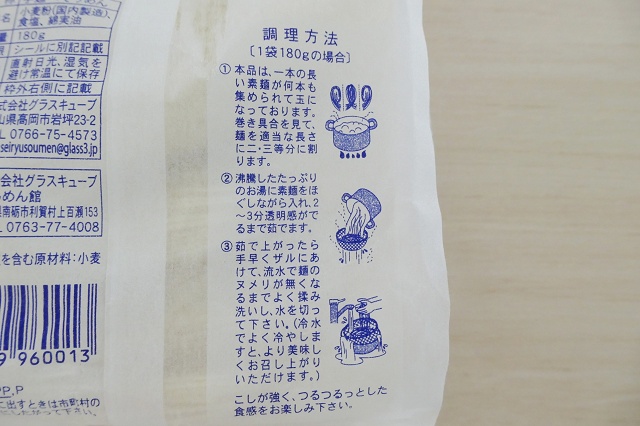 小麦粉(国内製造)、
食塩、綿実油
180g
シールに別記記載
直射日光、湿気を
避け常温にて保存
枠外右側に記載
式会社グラスキューブ
山県高岡市岩坪23-2
0766-75-4573
seiryusoumen@glass3.jp
会社グラスキューブ
めん館
県南砺市利賀村上百瀬153
0763-77-4008
を含む原材料:小麦
9 960013
PP,P
に出すときは市町村の
調理方法
〔1袋180gの場合〕
①本品は、一本の長
い素麺が何本も
集められて玉に
なっております。
巻き具合を見て、
麺を適当な長さ
に二・三等分に割
ります。
②沸騰したたっぷり
のお湯に素麺をほ
ぐしながら入れ、2
〜3分透明感がで
るまで茹でます。
③茹で上がったら
手早くザルにあ
けて、流水で麺の
ヌメリが無くな
るまでよく揉み
洗いし、水を切っ
て下さい。(冷水
でよく冷やしま
すと、より美味し
くお召し上がり
いただけます。)
こしが強く、つるつるっとした
食感をお楽しみ下さい。